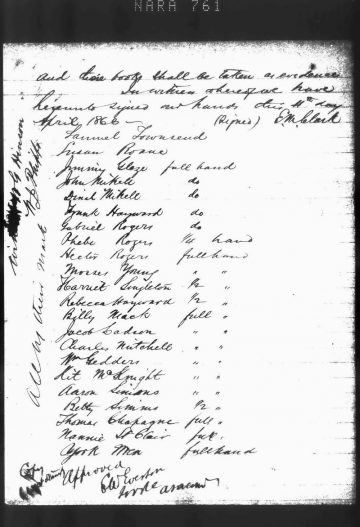 NARA 761
and their books shall be taken as evidence
In witness whereof we have
hereunto signed our hands this 11th day
April 1866 (Signed) E M Clark
Samuel Townsend
Susan Roane
Jimmy Glaze full hand
John Mikell do
Dinah Mikell do
Frank Hayward do
Gabriel Rogers do
Phebe Rogers 1/4 hand
Hector Rogers full hand
Morses Young " "
Harriet Singleton 1/2 "
Rebecca Hayward 1/2 "
Billy Mack full "
Jacob Ladson " "
Charles Mitchell " "
Wm Gedders " "
Kit McKnight " "
Aaron Simons " "
Betty Simms 1/2 "
Thomas Chapagne full "
Nannie St Clair full "
York Men full hand
All by their mark
Hinson
Approved